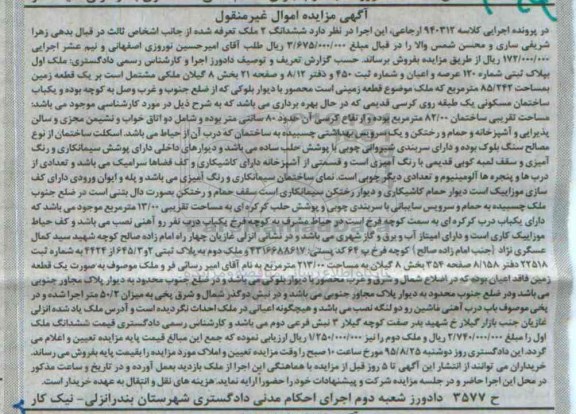 آگهی مزایده اموال غیرمنقول
در پرونده اجرایی کلاسه ۹۴۰۳۱۲ ارجاعی، این اجرا در نظر دارد ششدانگ ۲ ملک تعرفه شده از جانب اشخاص ثالث در قبال بدهی زهرا
شریفی ساری و محسن شمس والا را در قبال مبلغ ۳/۶۷۵/۰۰۰/۰۰۰ ریال طلب آقای امیرحسین نوروزی اصفهانی و نیم عشر اجرایی
۱۷۲/۰۰۰/۰۰۰ ریال از طریق مزایده بفروش برساند. حسب گزارش تعریف و توصیف دادورز اجرا و کارشناس رسمی دادگستری: ملک اول
بپلاک ثبتی شماره ۱۲۰ عرصه و اعیان و شماره ثبت ۴۵۰ و دفتر ۸/۱۲ و صفحه ۲۱ بخش ۸ گیلان ملکی مشتمل است بر یک قطعه زمین
بمساحت ۸۵/۲۴۲ مترمربع که ملک موضوع قطعه زمینی است محصور با دیوار بلوکی که از ضلع جنوب و غرب وصل به کوچه بوده و یکباب
ساختمان مسکونی یک طبقه روی کرسی قدیمی که در حال بهره برداری می باشد که به شرح ذیل در مورد کارشناسی موجود می باشد:
مساحت تقریبی ساختمان ۸۲/۰۰ مترمربع بوده و ارتفاع کرسی آن حدود ۸۰ سانتی متر بوده و شامل دو اتاق خواب و نشیمن مجزی و سالن
پذیرایی و آشپزخانه و حمام و رختکن و یک سرویس بهداشتی چسبیده به ساختمان که درب آن از حیاط می باشد. اسکلت ساختمان از نوع
مصالح سنگ بلوک بوده و دارای سربندی شیروانی چوبی با پوشش حلب ساده می باشد و دیوارهای داخلی دارای پوشش سیمانکاری و رنگ
آمیزی و سقف لمبه کوبی قدیمی با رنگ آمیزی است و قسمتی از آشپزخانه دارای کاشیکاری و کف فضاها سرامیک می باشد و تعدادی از
درب ها و پنجره ها آلومینیوم و تعدادی دیگر چوبی است. نمای ساختمان سیمانکاری و رنگ آمیزی می باشد و پله و ایوان ورودی دارای کف
سازی موزاییک است دیوار حمام کاشیکاری و دیوار رختکن سیمانکاری است سقف حمام و رختکن بصورت دال بتنی است در ضلع جنوب
ملک چسبیده به حمام و سرویس سایبانی با سربندی چوبی و پوشش حلب کرکره ای به مساحت تقریبی ۱۳/۰۰ مترمربع موجود می باشد که
دارای یکباب درب کرکره ای به سمت کوچه فرخ است در حیاط مشرف به کوچه فرخ یکباب درب نفر رو آهنی نصب می باشد و کف حیاط
موزاییک کاری است و دارای امتیاز آب و برق و گاز شهری می باشد و در نشانی انزلی غازیان چهار راه امام زاده صالح کوچه شهید سید کمال
عسگری نژاد (جنب امام زاده صالح) کوچه فرخ پ ۶۴ کد پستی ۴۳۱۶۶۸۸۶۱۷ و ملک دوم به پلاک ثبتی ۲و۳/۶۴۵از ۴۴۲۴ به شماره ثبت
۲۲۵۱۸ دفتر ۸/۱۵۸ صفحه ۳۵۴ بخش ۸ گیلان به مساحت ۲۱۳/۰۰ مترمربع به نام آقای امیر رسائی فر و ملک موصوف به صورت یک قطعه
زمین فاقد اعیان بوده که در اضلاع شمال و شرق و غرب محصور با دیوار بلوکی می باشد و در ضلع جنوب محدود به دیوار پلاک مجاور جنوبی
می باشد ودر ضلع جنوب محدود به دیوار پلاک مجاور جنوبی می باشد و در نبش دوگذر شمال و شرق پخی به میزان ۵۰/۲ متر اجرا شده و در
پخی موصوف باب درب آهنی ماشین رو دو لنگه نصب می باشد و هیچگونه اعیانی در ملک احداث نگردیده است و آدرس ملک یاد شده انزلی
غازیان جنب بازار گیلار خ شهید پدر صفت کوچه گیلار ۳ نبش فرعی دوم می باشد و کارشناس رسمی دادگستری قیمت ششدانگ ملک
اول را مبلغ ۲/۷۴۰/۰۰۰/۰۰۰ ریال و ملک دوم را نیز ۱/۲۵۰/۰۰۰/۰۰۰ ریال ارزیابی نموده که جمع این مبالغ قیمت پایه مزایده تعیین و اعلام می
گردد. این دادگستری روز دوشنبه ۹۵/۸/۲۵ مورخ ساعت ۱۰ صبح را وقت مزایده تعیین و املاک مورد مزایده را بقیمت پایه بفروش می رساند.
خریداران می توانند از انتشار این آگهی تا ۵ روز قبل از مزایده با هماهنگی این اجرا از ملک بازدید بعمل آورده و در تاریخ و ساعت مذکور
در محل این اجرا حاضر و در جلسه مزایده شرکت و پیشنهادات خود را حضوراً ارایه نماید. هزینه های نقل و انتقال به عهده خریدار است.
ح ۳۵۷۷ دادورز شعبه دوم اجرای احکام مدنی دادگستری شهرستان بندرانزلی- نیک کار